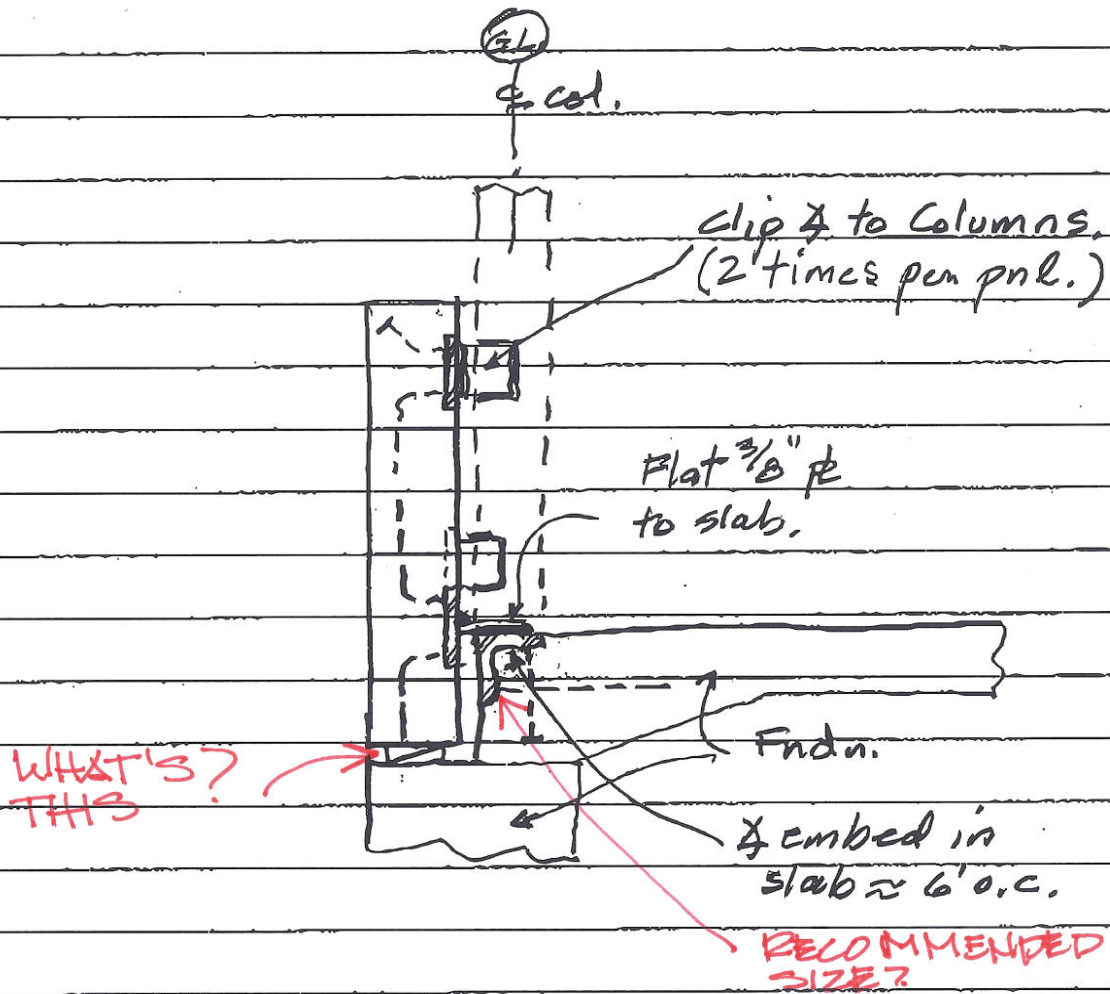 GL
℄ col.
clip ∡ to Columns.
(2 times per pnl.)
Flat 3/8" ⅊
to slab.
Fndn.
∡ embed in
slab ≈ 6' o.c.
WHAT'S?
THIS
RECOMMENDED
SIZE?